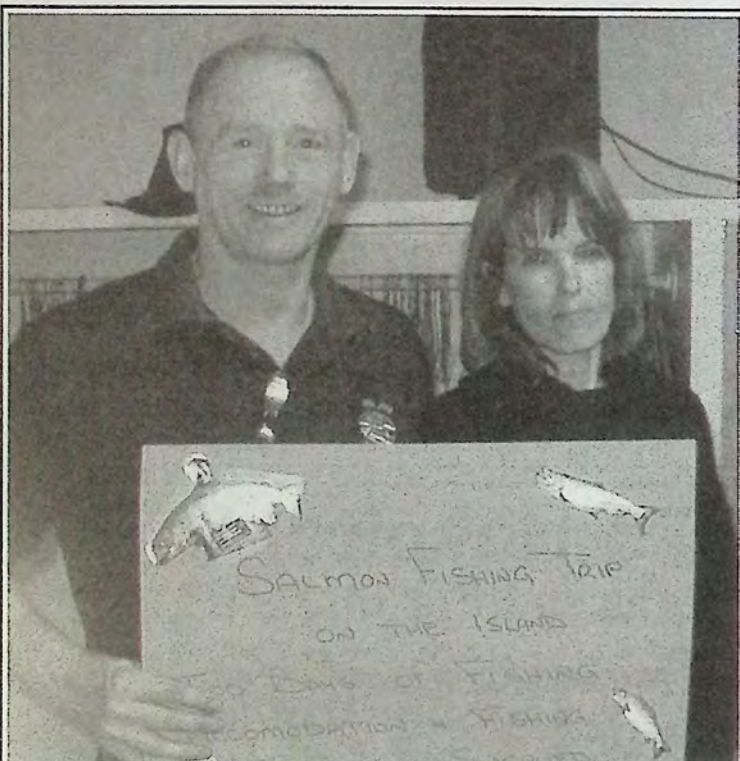 SALMON FISHING TRIP
ON THE ISLAND
TWO DAYS OF FISHING
ACCOMODATION & FISHING